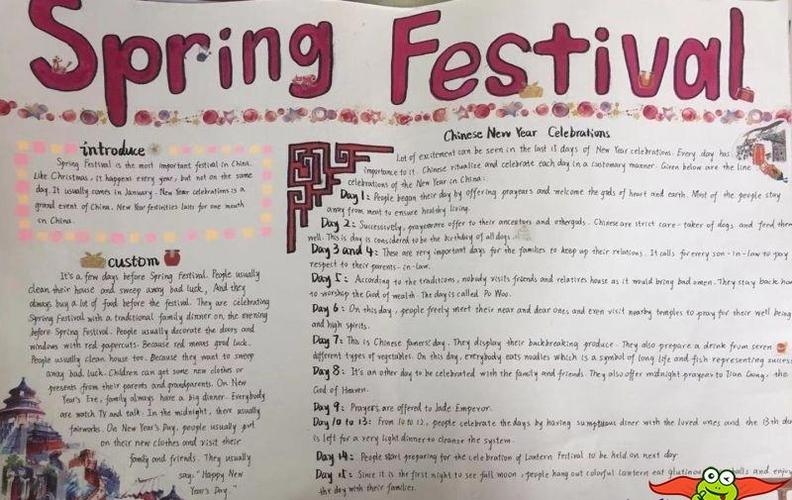 Spring Festival
introduce
Spring Festival is the most important festival in China.
Like Christmas, it happens every year, but not on the same
day. It usually comes in January. New Year celebrations is a
grand event of China. New Year festivities lasts for one month
in China.
custom
It's a few days before Spring Festival. People usually
clean their house and sweep away bad luck, And they
always buy a lot of food before the festival. They are celebrating
Spring Festival with a traditional family dinner on the evening
before Spring Festival. People usually decorate the doors and
windows with red papercuts. Because red means good luck.
People usually clean house too. Because they want to sweep
away bad luck. Children can get some new clothes or
presents from their parents and grandparents. On New
Year's Eve, family always have a big dinner. Everybody
are watch TV and talk. In the midnight, there usually
fairworks. On New Year's Day, people usually put
on their new clothes and visit their
family and friends. They usually
say: "Happy New
Year's Day."
Chinese New Year Celebrations
Lot of excitement can be seen in the last 15 days of New Year celebrations. Every day has
importance to it. Chinese ritualize and celebrate each day in a customary manner. Given below are the line
celebrations of the New Year in China:
Day 1: People began their day by offering prayers and welcome the gods of heart and earth. Most of the people stay
away from meat to ensure healthy living.
Day 2: Successively, prayers are offer to their ancestors and othergods. Chinese are strict care-taker of dogs and feed them
well. This day is considered to be the birthday of all dogs.
Day 3 and 4: These are very important days for the families to keep up their relations. It calls for every son-in-law to pay
respect to their parents-in-law.
Day 5: According to the traditions, nobody visits friends and relatives house as it would bring bad omen. They stay back
to worship the God of wealth. The day is called Po Woo.
Day 6: On this day, people freely meet their near and dear ones and even visit nearby temples to pray for their well being
and high spirits.
Day 7: This is Chinese famers' day. They display their backbreaking produce. They also prepare a drink from seven
different types of vegetables. On this day, everybody eats noodles which is a symbol of long life and fish representing success
Day 8: It's an other day to be celebrated with the family and friends. They also offer midnight prayer to Tian Gong, the
God of Heaven.
Day 9: Prayers are offered to Jade Emperor.
Day 10 to 13: From 10 to 12, people celebrate the days by having sumptuous diner with the loved ones and the 13th day
is left for a very light dinner to cleanse the system.
Day 14: People start preparing for the celebration of Lantern Festival to be held on next day.
Day 15: Since it is the first night to see full moon, people hang out colorful Lantern eat glutinous balls and enjoy
the day with their families.